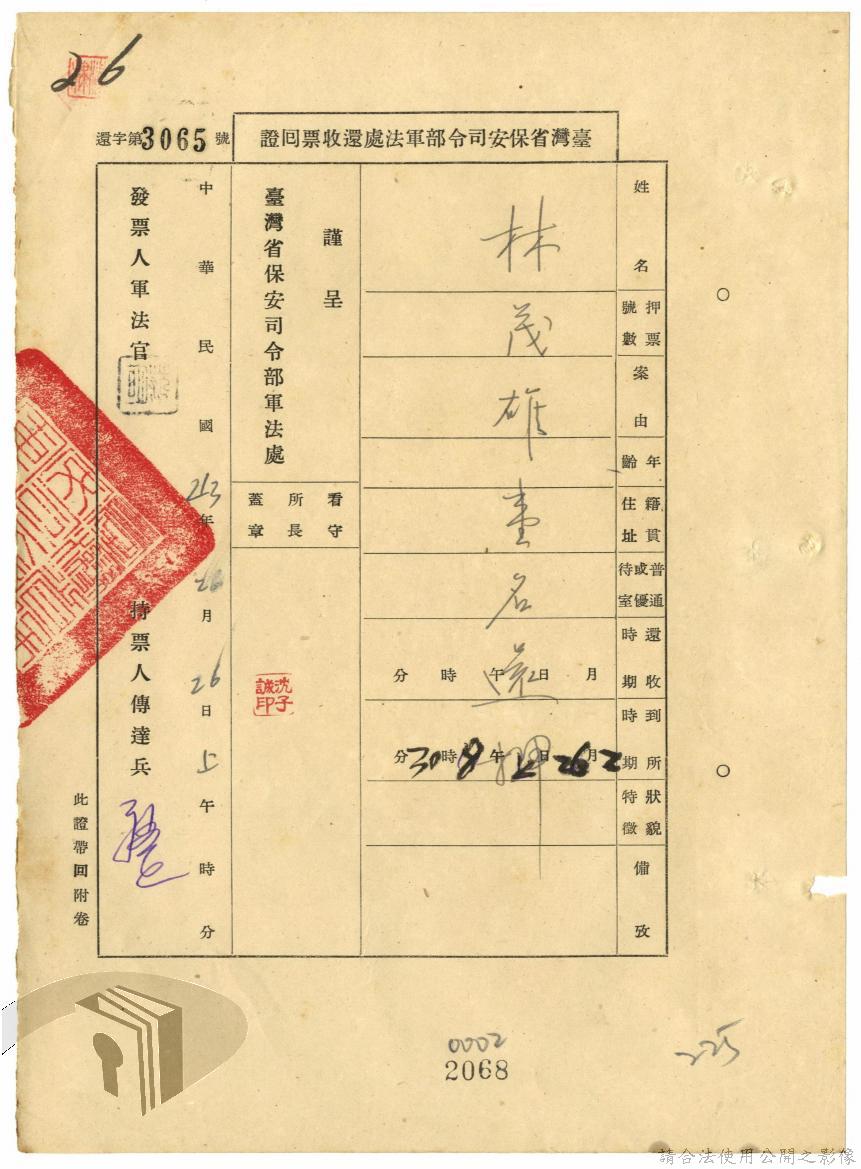 26
臺灣省保安司令部軍法處還收票回證
還字第3065號
姓名
押票號數
案由
年齡
籍貫住址
普通或優待室
還收時期
到所時期
狀貌特徵
備攷
林茂雄壹名還押
月日午時分
2月26日上午8時30分
謹呈
臺灣省保安司令部軍法處
看守所長蓋章
沈子誠印
中華民國 年 月26日上午 時 分
發票人軍法官
持票人傳達兵
此證帶回附卷
0002
2068
225
請合法使用公開之影像